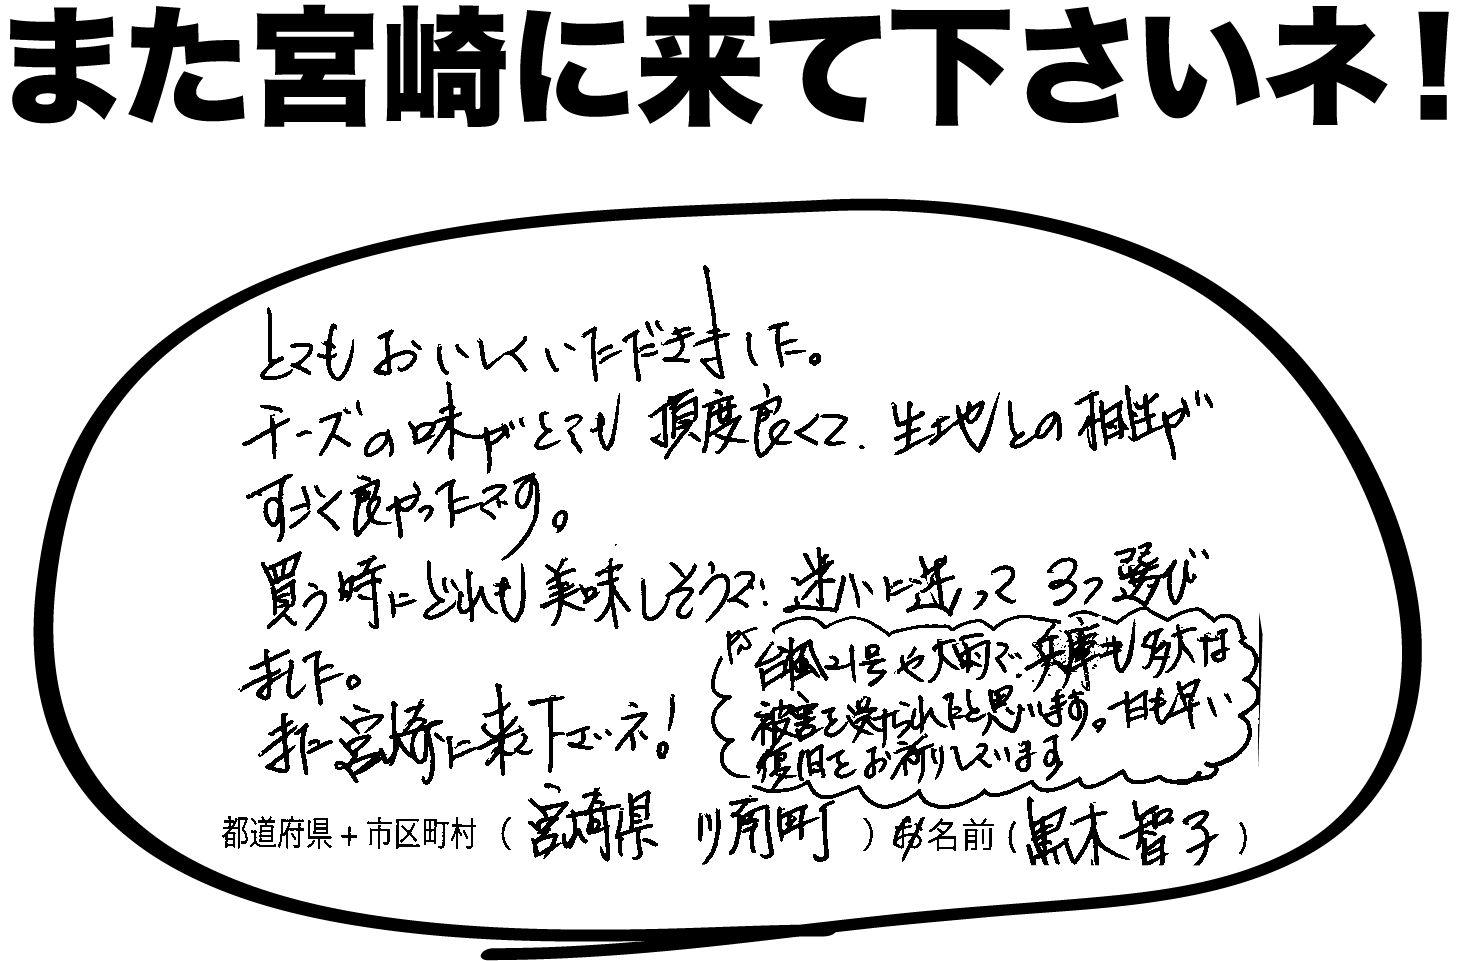 また宮崎に来て下さいネ！
とてもおいしくいただきました。
チーズの味がとても頂度良くて、生地との相性が
すごく良かったです。
買う時にどれも美味しそうで、迷いに迷って3つ選び
ました。
また宮崎に来て下さいネ！
PS
台風21号や大雨で、兵庫も多大な
被害を受けられたと思います。一日も早い
復旧をお祈りしています
都道府県＋市区町村（宮崎県 川南町）お名前（黒木智子）